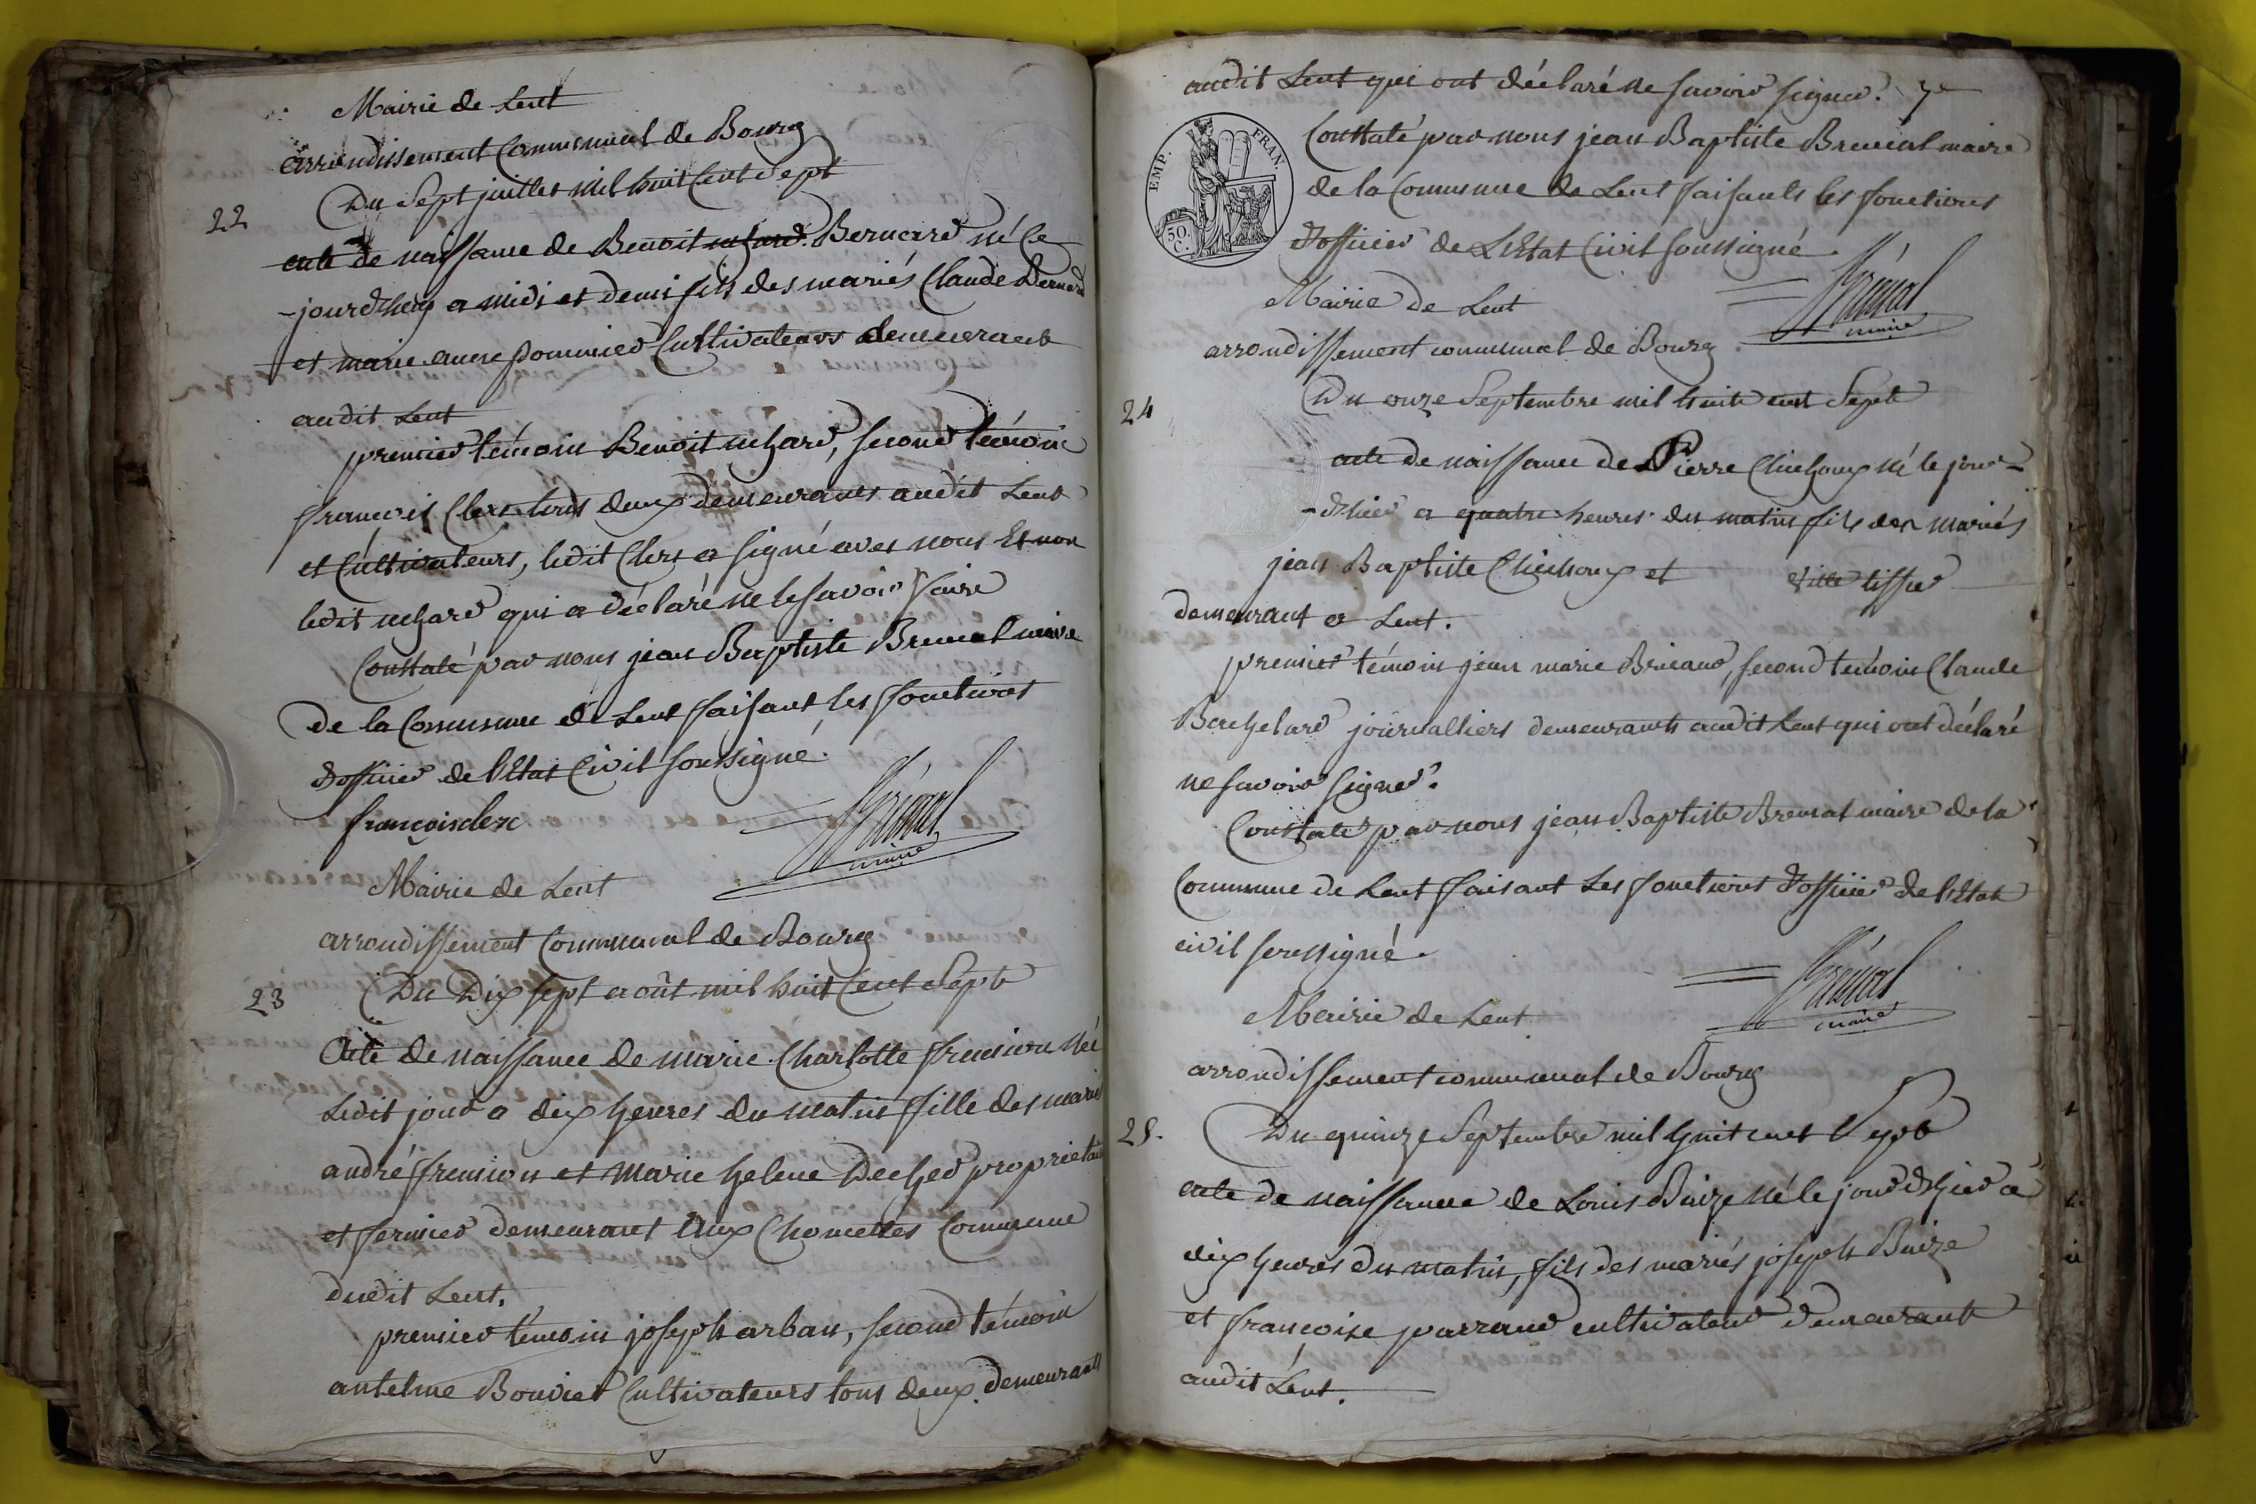 Mairie de Lent
arrondissement Communal de Bourg
22
Du Sept juillet mil huit Cent Sept
acte de naissance de Benoit Bernard né Ce
-jourdhuy a midi et demi fils des mariés Claude Bernard
et marie anne pommier Cultivateurs demeurant
audit Lent
premier témoin Benoit uchard, second témoin
francois Clerc tous deux demeurants audit Lent
et Cultivateurs, ledit Clerc a signé avec nous Et non
ledit uchard qui a déclaré ne le savoir faire
Constaté par nous jean Baptiste Brevial maire
de la Commune de Lent faisant les fonctions
d'officier de l'Etat Civil soussigné.
françois clerc
maire
Mairie de Lent
arrondissement Communal de Bourg
23
Du Dix sept août mil huit Cent Sept
Acte de naissance de marie Charlotte fremion Née
Ledit jour a dix heures du matin fille des mariés
andré fremion et Marie helene Decher proprietaire
et fermier demeurant Aux Choncelles Commune
dudit Lent.
premier témoin joseph arban, second témoin
antelme Bouvier Cultivateurs tous deux demeurants
audit Lent qui ont déclaré ne savoir signer. 7e
EMP. FRAN.
50. C.
Constaté par nous jean Baptiste Brevial maire
de la Commune de Lent faisants les fonctions
d'officier de L'Etat Civil soussigné
maire
Mairie de Lent
arrondissement communal de Bourg
24
Du onze Septembre mil huit cent Sept
acte de naissance de Pierre Chichoux né le jour-
-d'hier a quatre heures du matin fils des mariés
jean Baptiste Chichoux et tissier
demeurant a Lent.
premier témoin jean marie Bricaud, second témoin Claude
Berchelard journalliers demeurants audit Lent qui ont déclaré
ne savoir signer.
Constaté par nous jean Baptiste Brevial maire de la
Commune de Lent faisant Les fonctions d'officier de l'Etat
civil soussigné.
maire
Mairie de Lent
arrondissement communal de Bourg
25.
Du quinze Septembre mil huit cent Sept
acte de naissance de Louis Buize né le jour d'hier a
dix heures du matin, fils des mariés joseph Buize
et françoise parrand cultivateur demeurant
audit Lent.